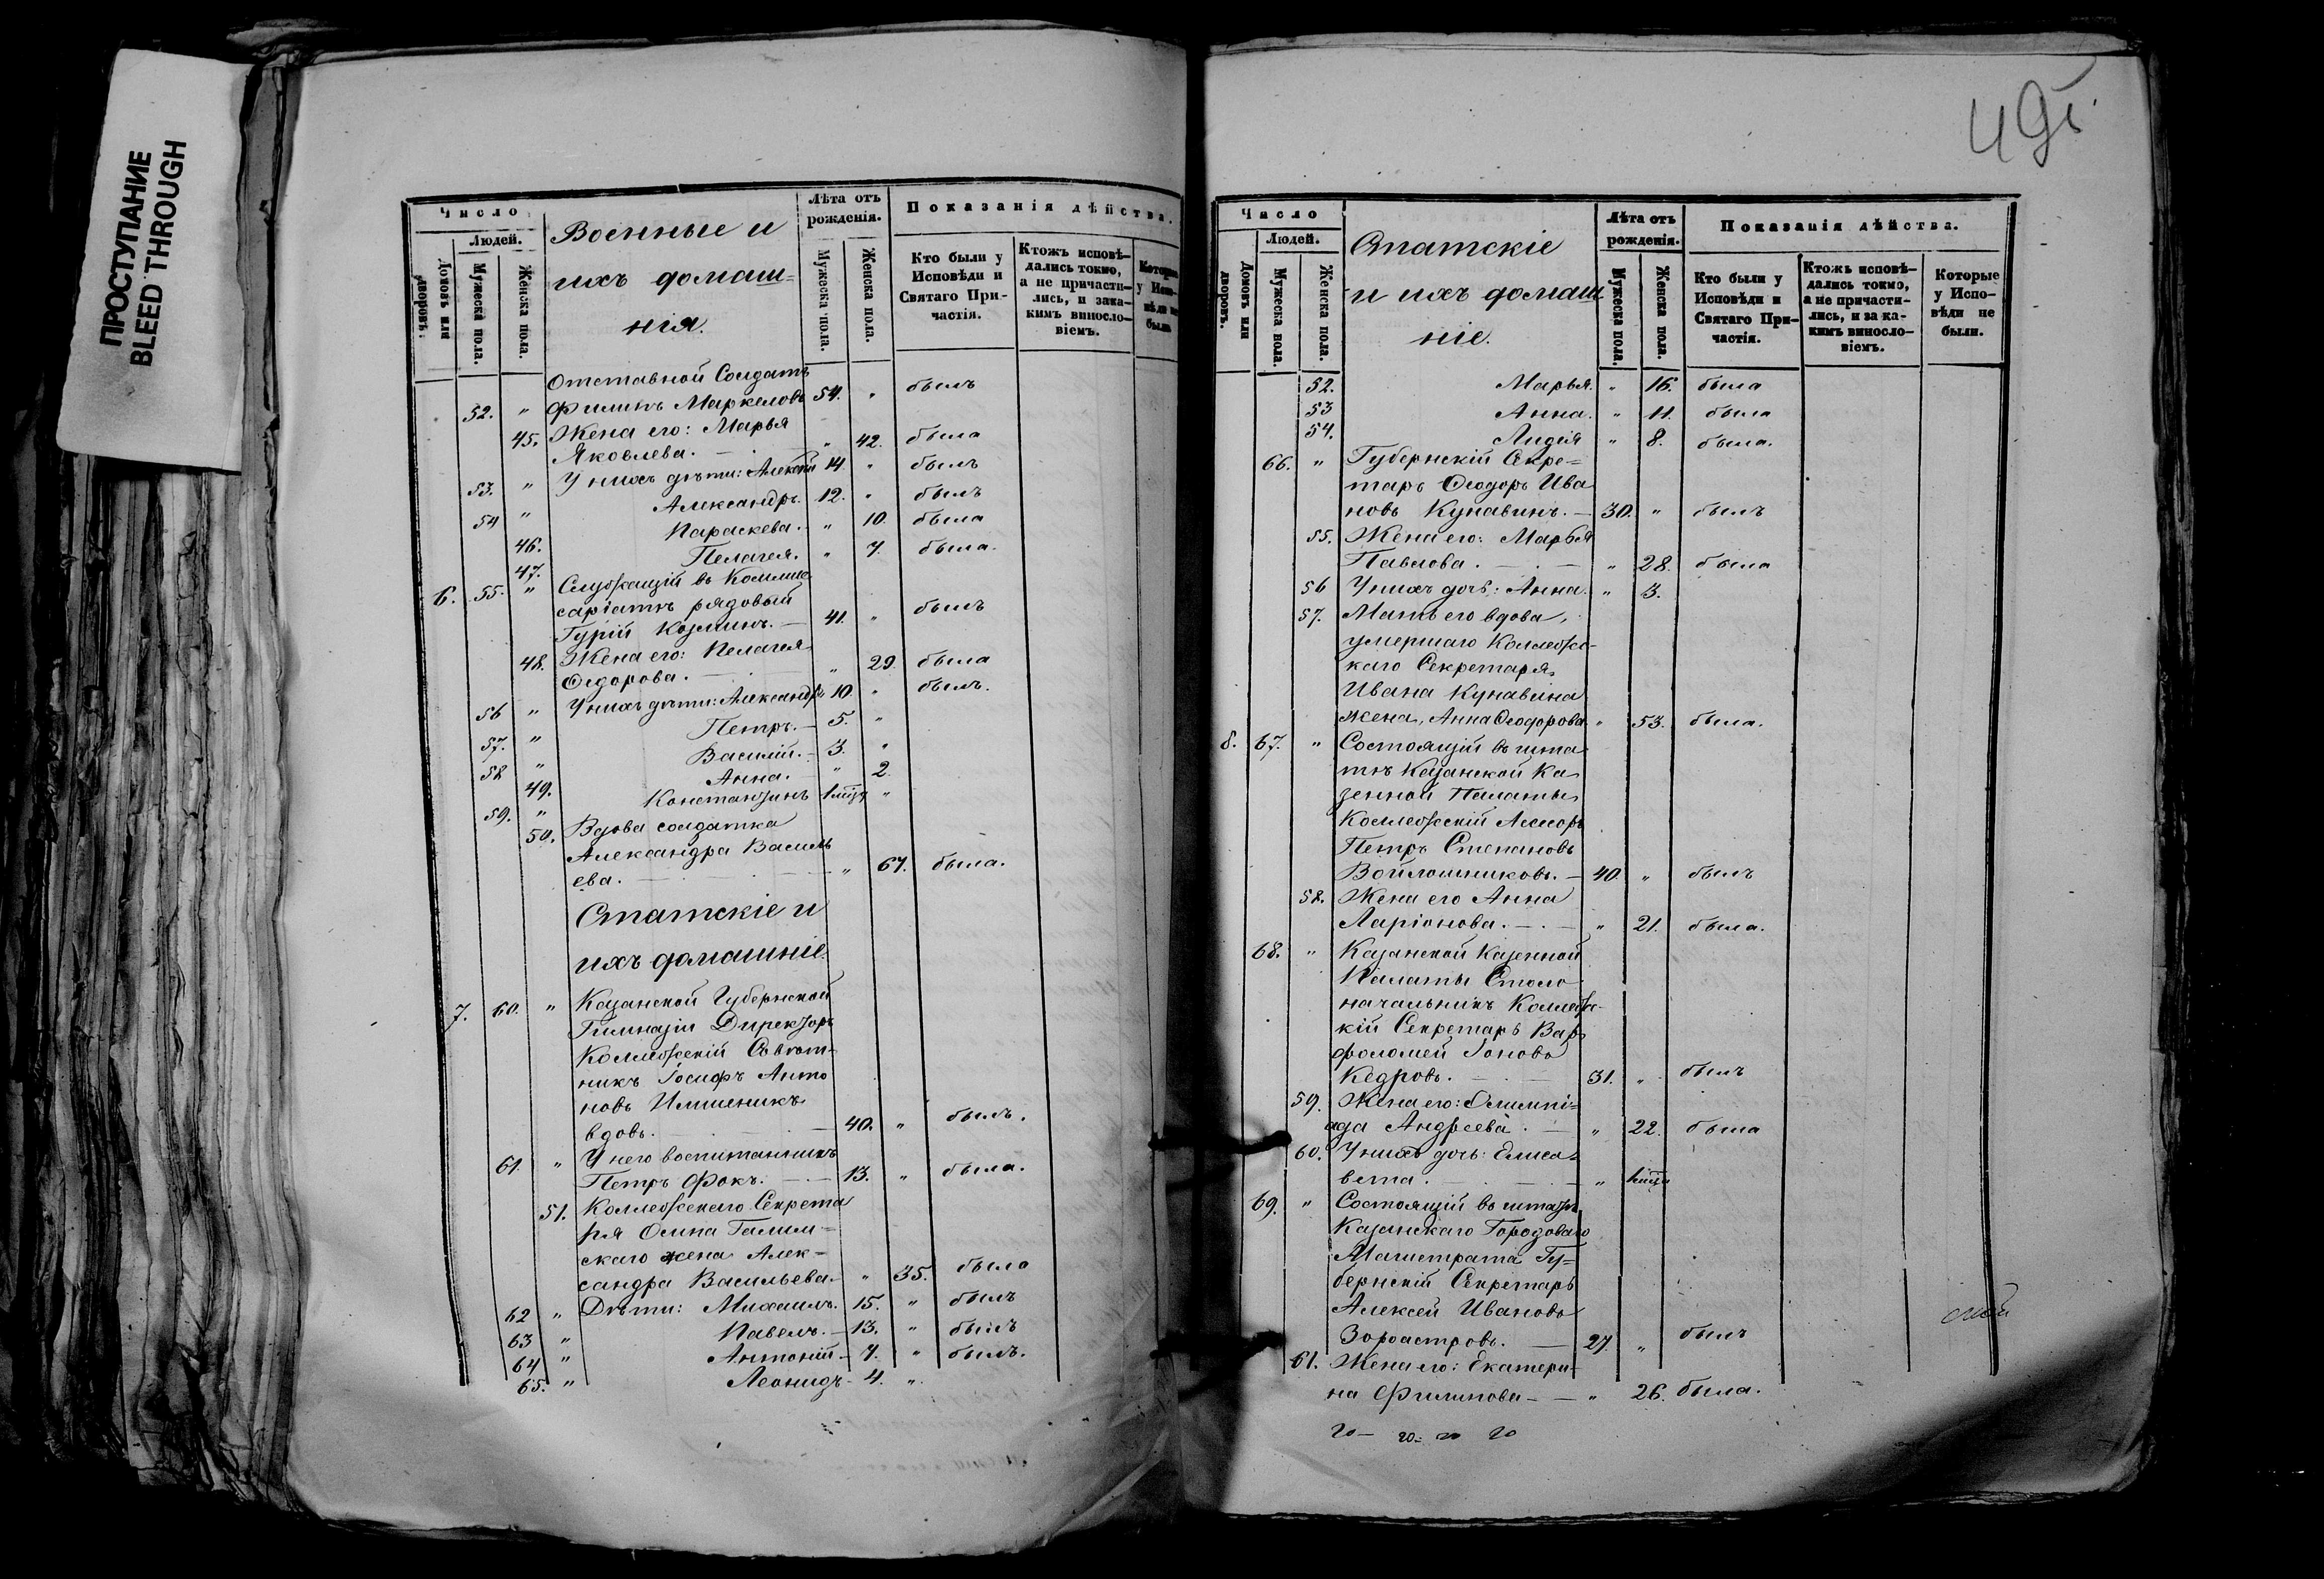 ПРОСТУПАНИЕ
BLEED THROUGH
Число
Людей.
Домовъ или дворовъ.
Мужеска пола.
Женска пола.
Военные и
ихъ домаш-
нія.
Лѣта отъ
рожденія.
Мужеска пола.
Женска пола.
Показанія дѣйства.
Кто были у
Исповѣди и
Святаго При-
частія.
Ктожъ исповѣ-
дались токмо,
а не причасти-
лись, и зака-
кимъ виносло-
віемъ.
Отставной Солдатъ
52. " Филипъ Маркеловъ 54. " былъ
45. Жена его: Марья
Яковлева. " 42. была
53. " У нихъ дѣти: Алексѣй 14. " былъ
54 " Александръ. 12. " былъ
46. Параскева. " 10. была
47. Пелагея. " 7. была.
6. 55. " Служащій въ Коммис
саріатѣ рядовый
Гурій Козминъ. 41. " былъ
48. Жена его: Пелагея
Ѳедорова. " 29. была
56 " У нихъ дѣти: Александръ 10. " былъ.
57. " Петръ. 5. "
58 " Василій. 3. "
49. Анна. " 2.
59. " Константинъ "
50. Вдова солдатка
Александра Василь
ева. " 67. была.
Статскіе и
ихъ домашніе.
7. 60. " Казанской Губернской
Гимназіи Директоръ
Коллежскій Совѣт-
никъ Іосифъ Анто
новъ
40. " былъ.
61. " У него воспитанникъ
Петръ Фокъ. 13. " была.
51. Коллежскаго Секрета
ря
скаго жена Алек-
сандра Васильева. " 35. была
62 " Дѣти: Михаилъ. 15. " былъ
63 " Павелъ. 13. " былъ
64 " Антоній. 7. " былъ.
65. " Леонидъ 4. "
495.
Число
Людей.
Домовъ или дворовъ.
Мужеска пола.
Женска пола.
Статскіе
и ихъ домаш
ніе.
Лѣта отъ
рожденія.
Мужеска пола.
Женска пола.
Показанія дѣйства.
Кто были у
Исповѣди и
Святаго При-
частія.
Ктожъ исповѣ-
дались токмо,
а не причасти-
лись, и за ка-
кимъ виносло-
віемъ.
Которые
у Испо-
вѣди не
были.
52. Марья. " 16. была
53 Анна. " 11. была
54. Лидія " 8. была.
66. " Губернскій Секре=
таръ Ѳеодоръ Ива
новъ Кунавинъ. 30. " былъ
55. Жена его: Марья
Павлова. " 28. была
56 У нихъ дочь: Анна. " 3.
57. Мать его вдова,
умершаго Коллежс-
каго Секретаря
Ивана Кунавина
жена, Анна Ѳеодорова " 53. была.
8. 67. " Состоящій въ шта
тѣ Казанской Ка
зенной Палаты
Коллежскій Асесоръ
Петръ Степановъ
Войлошниковъ. 40. " былъ
58. Жена его Анна
Ларіонова. " 21. была.
68. " Казанской Казенной
Палаты Столо
начальникъ Коллежс-
кій Секретарь Вар
фоломей Іоновъ
Кедровъ. 31. " былъ
59. Жена его: Олимпі=
ада Андреева. " 22. была
60. У нихъ дочь: Елиса=
вета. "
69. " Состоящій въ штатѣ
Казанскаго Городоваго
Магистрата Гу=
бернскій Секретарь
Алексей Ивановъ
Зороастровъ. 27. " былъ
61. Жена его: Екатери-
на Филипова " 26. была.